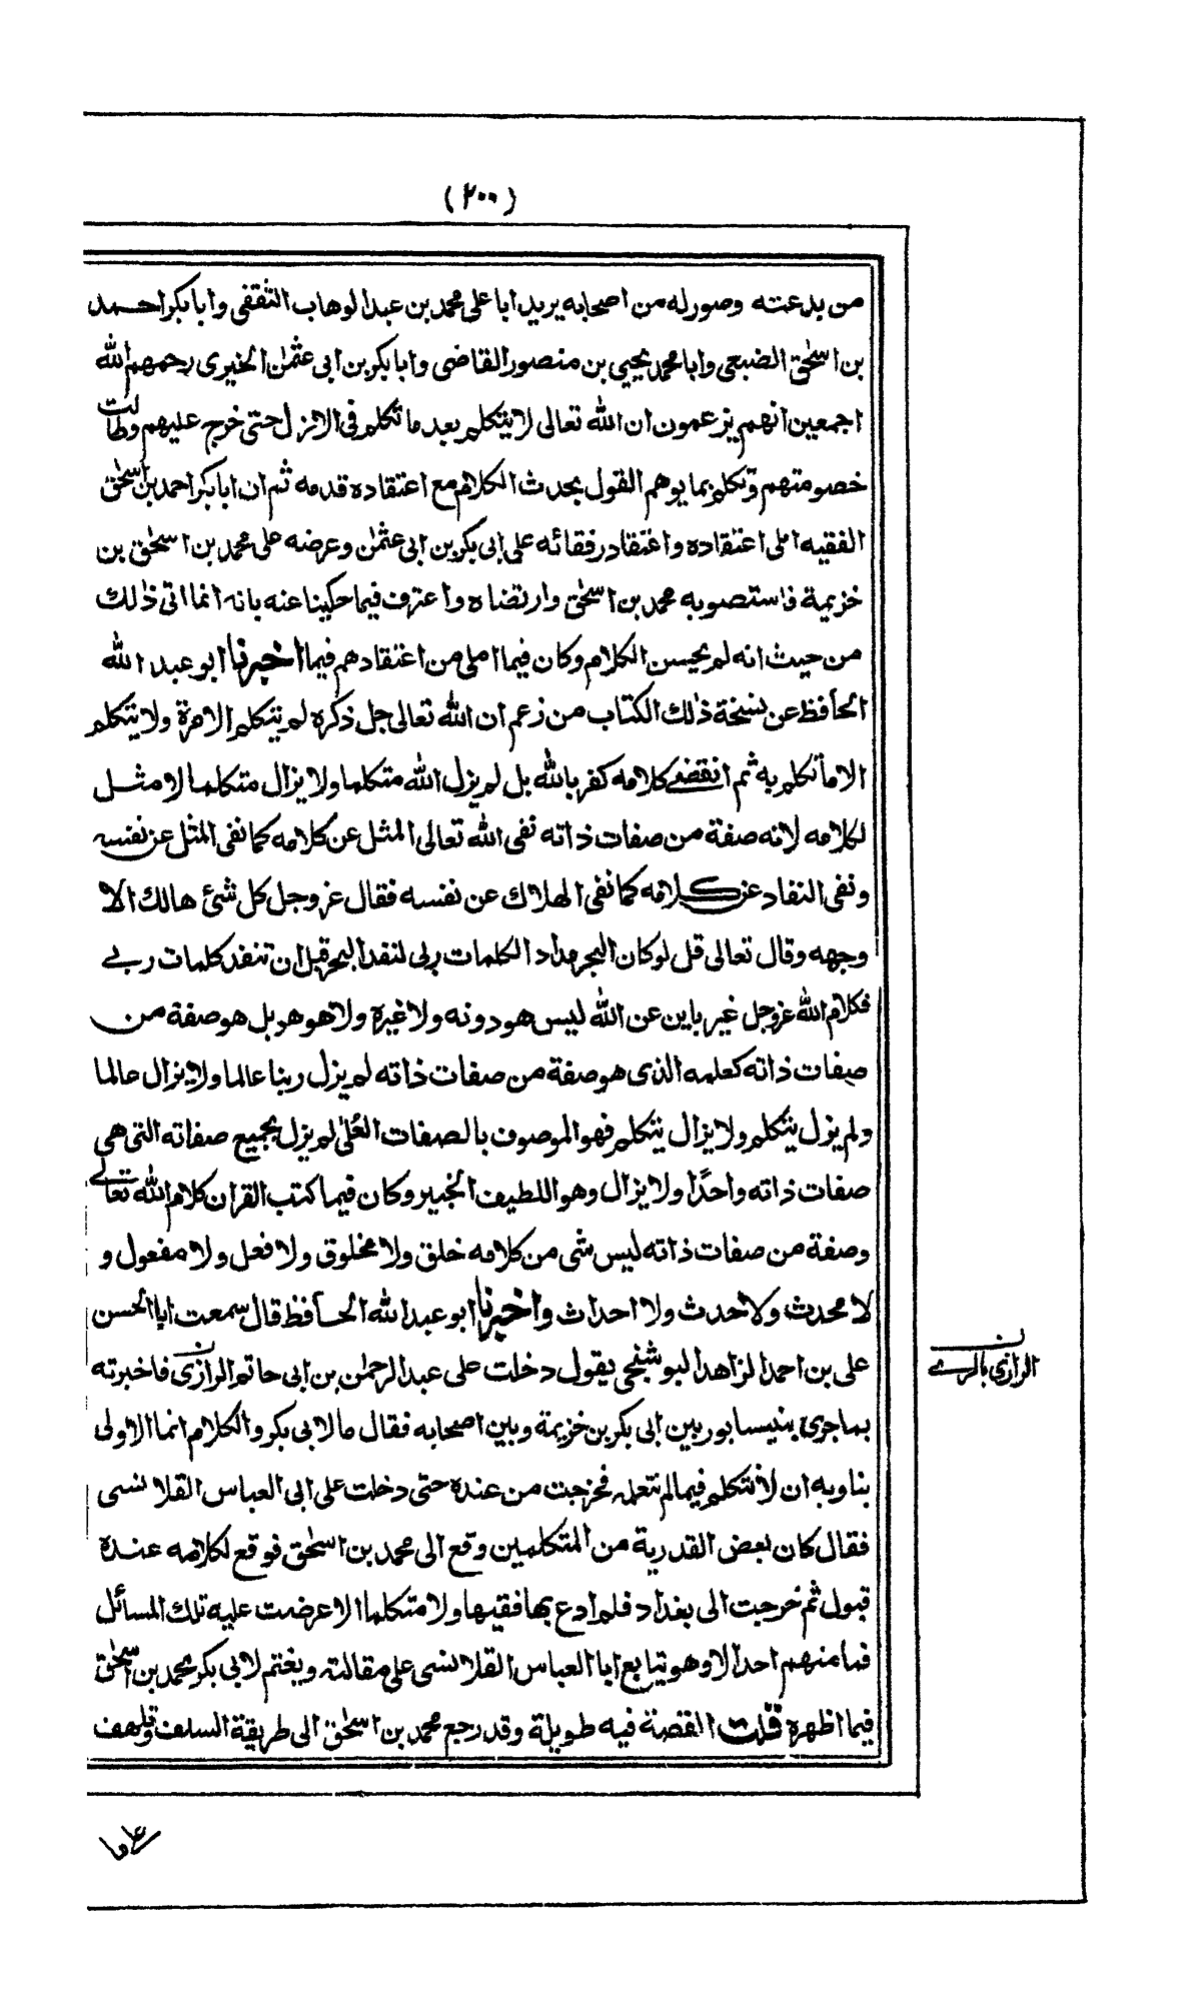 (٢٠٠)
من بدعته وصور له من اصحابه يريد ابا على محمد بن عبد الوهاب الثقفى وابا بكر احمد
بن اسحٰق الضبعى وابا محمد يحيى بن منصور القاضى وابا بكر بن ابى عثمٰن الحيرى رحمهم الله
اجمعين انهم يزعمون ان الله تعالى لا يتكلم بعد ما تكلم فى الازل حتى خرج عليهم وطالت
خصومتهم وتكلم بما يوهم القول بحدث الكلام مع اعتقاده قدمه ثم ان ابا بكر احمد بن اسحٰق
الفقيه املى اعتقاده واعتقاد رفقائه على ابى بكر بن ابى عثمٰن وعرضه على محمد بن اسحٰق بن
خزيمة فاستصوبه محمد بن اسحٰق وارتضاه واعترف فيما حكينا عنه بانه انما اتى ذٰلك
من حيث انه لم يحسن الكلام وكان فيما املى من اعتقادهم فيما اخبرنا ابو عبد الله
الحافظ عن نسخة ذٰلك الكتاب من زعم ان الله تعالى جل ذكره لم يتكلم الا مرة ولا يتكلم
الا ما تكلم به ثم انقضى كلامه كفر بالله بل لم يزل الله متكلما ولا يزال متكلما لا مثل
لكلامه لانه صفة من صفات ذاته نفى الله تعالى المثل عن كلامه كما نفى المثل عن نفسه
ونفى النفاد عن كلامه كما نفى الهلاك عن نفسه فقال عز وجل كل شئ هالك الا
وجهه وقال تعالى قل لو كان البحر مدادا لكلمات ربى لنفد البحر قبل ان تنفد كلمات ربى
فكلام الله عز وجل غير باين عن الله ليس هو دونه ولا غيره ولا هو هو بل هو صفة من
صفات ذاته كعلمه الذى هو صفة من صفات ذاته لم يزل ربنا عالما ولا يزال عالما
ولم يزل يتكلم ولا يزال يتكلم فهو الموصوف بالصفات العُلىٰ لم يزل بجميع صفاته التى هى
صفات ذاته واحدًا ولا يزال وهو اللطيف الخبير وكان فيما كتب القرآن كلام الله تعالى
وصفة من صفات ذاته ليس شى من كلامه خلق ولا مخلوق ولا فعل ولا مفعول و
لا محدث ولا حدث ولا احداث واخبرنا ابو عبد الله الحافظ قال سمعت ابا الحسن
على بن احمد الزاهد البوشنجى يقول دخلت على عبد الرحمٰن بن ابى حاتم الرازى فاخبرته
ن
الرازى بالرى
بما جرى بنيسابور بين ابى بكر بن خزيمة وبين اصحابه فقال ما لابى بكر والكلام انما الاولى
بنا وبه ان لا نتكلم فيما لم نتعلمه فخرجت من عنده حتى دخلت على ابى العباس القلانسى
فقال كان بعض القدرية من المتكلمين وقع الى محمد بن اسحٰق فوقع لكلامه عنده
قبول ثم خرجت الى بغداد فلم ادع بها فقيها ولا متكلما الا عرضت عليه تلك المسائل
فما منهم احد الا وهو يتابع ابا العباس القلانسى على مقالته ويغتم لابى بكر محمد بن اسحٰق
فيما اظهره قلت القصة فيه طويلة وقد رجع محمد بن اسحٰق الى طريقة السلف وتلهف
على ما